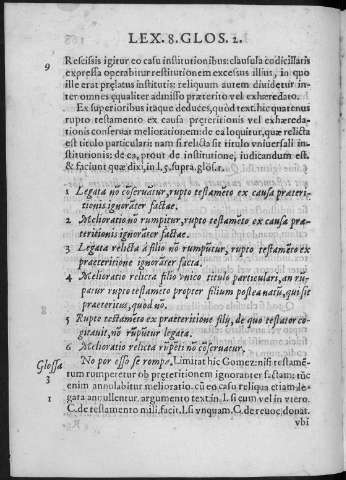 LEX. 8. GLOS. 2.
9 Rescissis igitur eo casu institutionibus: clausula codicillaris
expressa operabitur restitutionem excessus illius, in quo
ille erat prælatus institutis: reliquum autem diuidetur in-
ter omnes equaliter admisso præterito vel exhæredato.
Ex superioribus itaque deduces, quòd text. hic quatenus
rupto testamento ex causa præteritionis vel exhæreda-
tionis conseruat meliorationem: de ea loquitur, quæ relicta
est titulo particulari: nam si relicta sit titulo vniuersali in-
stitutionis: de ea, prout de institutione, iudicandum est.
& faciunt quæ dixi, in l. 5. supra. glos. 1.
1 Legata nō cōseruātur, rupto testamēto ex causa præteri-
tionis ignorāter factæ.
2 Melioratio nō rumpitur, rupto testamēto ex causa præ-
teritionis ignorāter factæ.
3 Legata relicta à filio nō rumpūtur, rupto testamēto ex
praeteritione ignorāter facta.
4 Melioratio relicta filio vnico titulo particulari, an rū-
patur rupto testamēto propter filium postea natū, qui sit
praeteritus, quòd nō.
5 Rupto testamēto ex praeteritione filij, de quo testator co-
gitauit, nō rūpūtur legata.
6 Melioratio relicta rūpēti nō cōseruatur.
Glossa 3 No por esso se rompa. Limitat hic Gomez: nisi testamē-
tum rumperetur ob præteritionem ignoranter factam: tūc
enim annulabitur melioratio. cū eo casu reliqua etiam le-
1 gata annullentur. argumento text. in l. si cum vel in vtero.
C. de testamento mili. facit. l. si vnquam. C. de reuoc. donat.
vbi